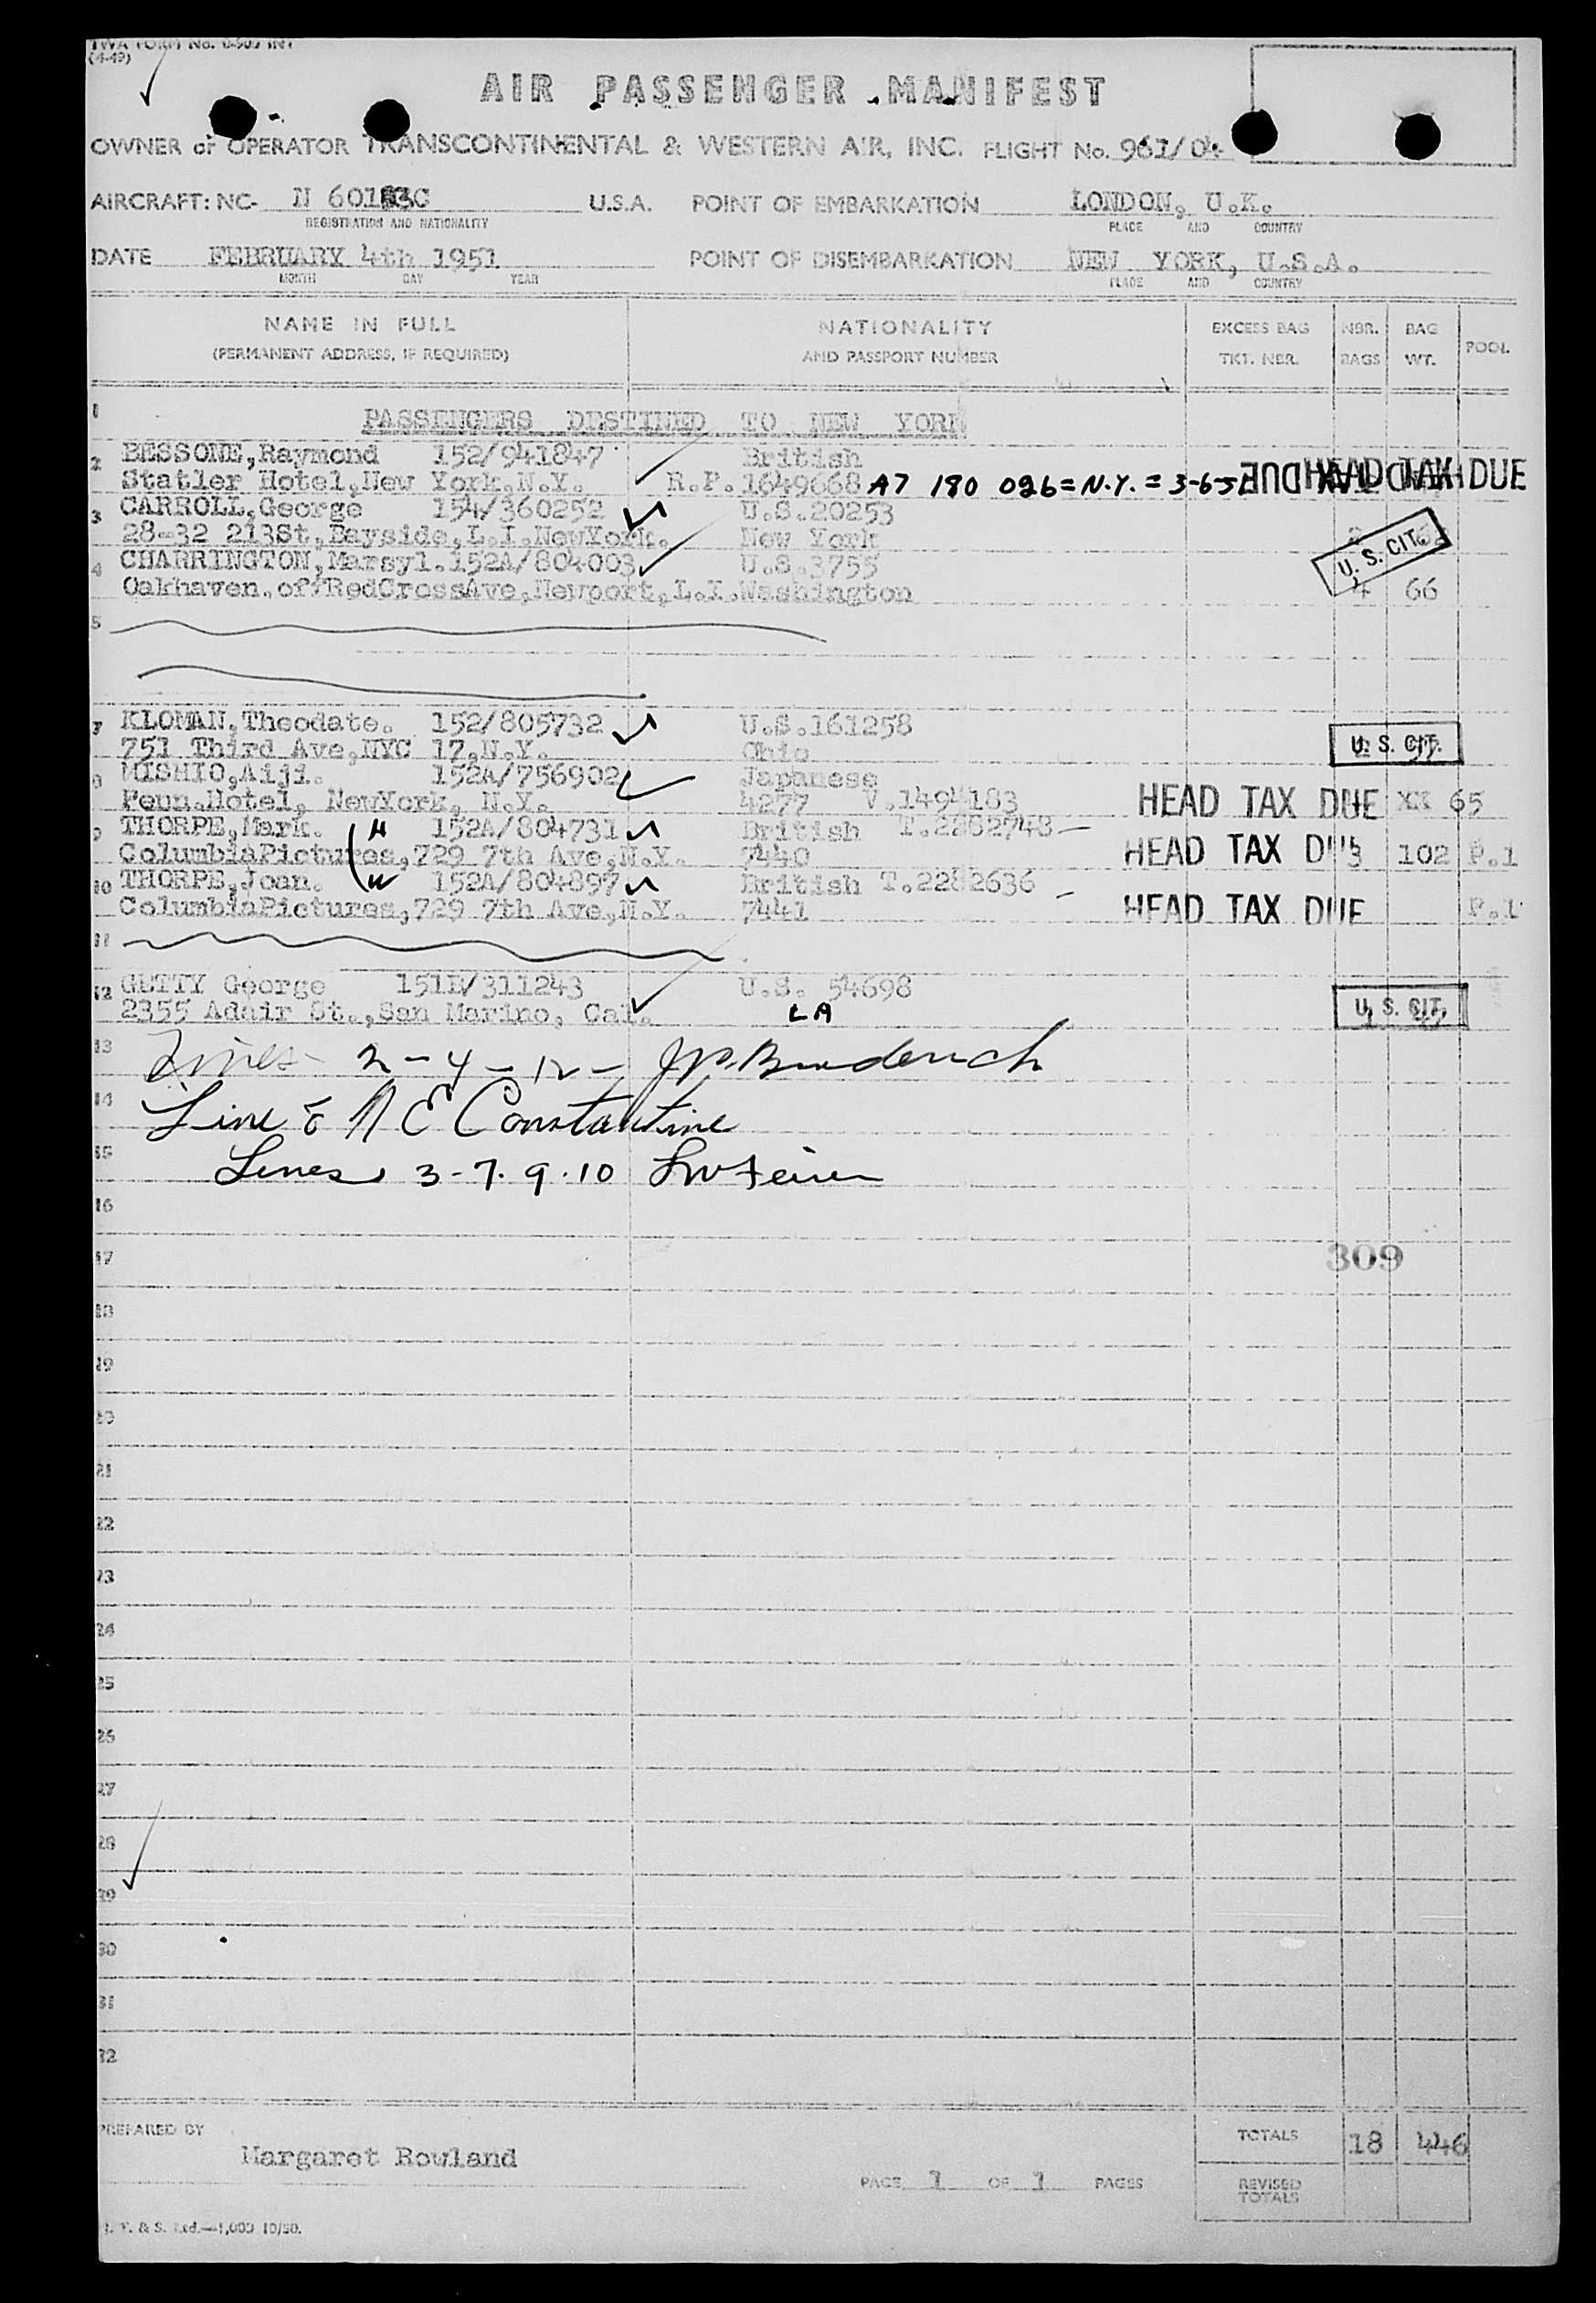 TWA FORM No. INT
(4-49)
AIR PASSENGER MANIFEST
OWNER or OPERATOR TRANSCONTINENTAL & WESTERN AIR, INC. FLIGHT No. 961/04
AIRCRAFT: NC- U.S.A. POINT OF EMBARKATION LONDON, U.K.
REGISTRATION AND NATIONALITY PLACE AND COUNTRY
DATE FEBRUARY 4th 1951 POINT OF DISEMBARKATION NEW YORK, U.S.A.
MONTH DAY YEAR PLACE AND COUNTRY
NAME IN FULL NATIONALITY EXCESS BAG NBR. BAG POOL
(PERMANENT ADDRESS, IF REQUIRED) AND PASSPORT NUMBER TKT. NBR. BAGS WT.
1 PASSENGERS DESTINED TO NEW YORK
2 BESSONE,Raymond 152/941847 British
Statler Hotel,New York.N.Y. R.P.1649668 A7 180 026 = N.Y. = HEAD TAX DUE
3 CARROLL,George 154/360252 U.S.20253
28-32 213St,Bayside,L.I.NewYork. New York U. S. CIT.
4 CHARRINGTON,Marsyl.152A/804003 U.S.3755
Oakhaven.of:RedCrossAve,Newport,L.I.Washington 4 66
5
7 KLOMAN,Theodate. 152/805732 U.S.161258
751 Third Ave,NYC 17,N.Y. Ohio U. S. CIT.
8 MISHIO,Aiji. 152A/756902 Japanese
Penn.Hotel, NewYork, N.Y. 4277 V.1494183 HEAD TAX DUE XX 65
9 THORPE,Mark. 152A/804731 British T.2282748
ColumbiaPictures,729 7th Ave,N.Y. 7440 HEAD TAX DUE 102 P.1
10 THORPE,Joan. 152A/804897 British T.2282636
ColumbiaPictures,729 7th Ave,N.Y. 7441 HEAD TAX DUE P.1
11
12 GETTY George 151E/311243 U.S. 54698
2355 Adair St.,San Marino, Cal. LA U. S. CIT.
13 Lines - 2 - 4 - 12 -
14 Line 8 N E Constantine
15 Lines 3 - 7. 9. 10
16
17 309
18
19
20
21
22
23
24
25
26
27
28
29
30
31
32
PREPARED BY TOTALS 18 446
Margaret Rowland
PAGE 1 OF 1 PAGES REVISED
TOTALS
& S. Ltd.—1,000 10/50.